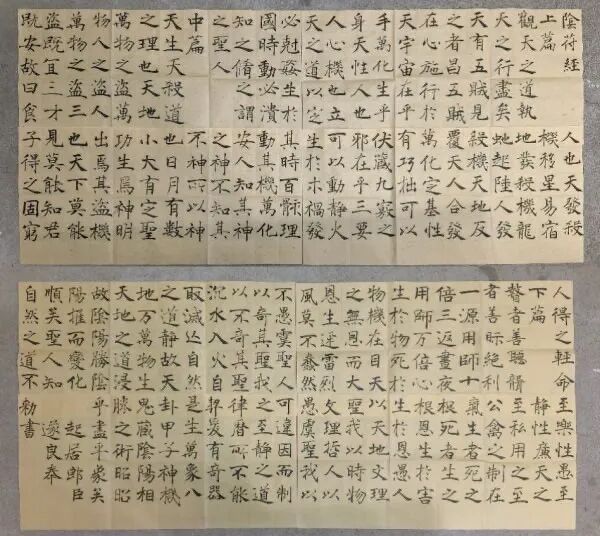 陰符經
上篇
觀天之道執
天之行盡矣
天有五賊見
之者昌五賊
在心施行於
天宇宙在乎
手萬化生乎
身天性人也
人心機也立
天之道以定
人也天發殺
機移星易宿
地發殺機龍
虵起陸人發
殺機天地反
覆天人合發
萬化定基性
有巧拙可以
伏藏九竅之
邪在乎三要
可以動靜火
生於木禍發
必剋姦生於
國時動必潰
知之脩之謂
之聖人
中篇
天生天殺道
之理也天地
萬物之盜萬
物人之盜人
萬物之盜三
盜既宜三才
既安故曰食
其時百骸理
動其機萬化
安人知其神
之神不知其
不神所以神
也日月有數
小大有定聖
功生焉神明
出焉其盜機
也天下莫能
見莫能知君
子得之固窮
人得之輕命
下篇
瞽者善聽聾
者善眎絕利
一源用師十
倍三返晝夜
用師万倍心
生於物死於
物機在目天
之無恩而大
恩生迅雷烈
風莫不蠢然
至樂性愚至
靜性廉天之
至私用之至
公禽之制在
氣生者死之
根死者生之
根恩生於害
生於恩愚人
以天地文理
聖我以時物
文理哲人以
愚虞聖我以
不愚虞聖人
以奇其聖我
以不奇其聖
沉水入火自
取滅亡自然
之道靜故天
地萬物生
天地之道浸
故陰陽勝陰
陽推而變化
順矣聖人知
自然之道不
可違因而制
之至靜之道
律曆所不能
契爰有奇器
是生萬象八
卦甲子神機
鬼藏陰陽相
勝之術昭昭
乎盡乎象矣
起居郎臣
遂良奉
勅書